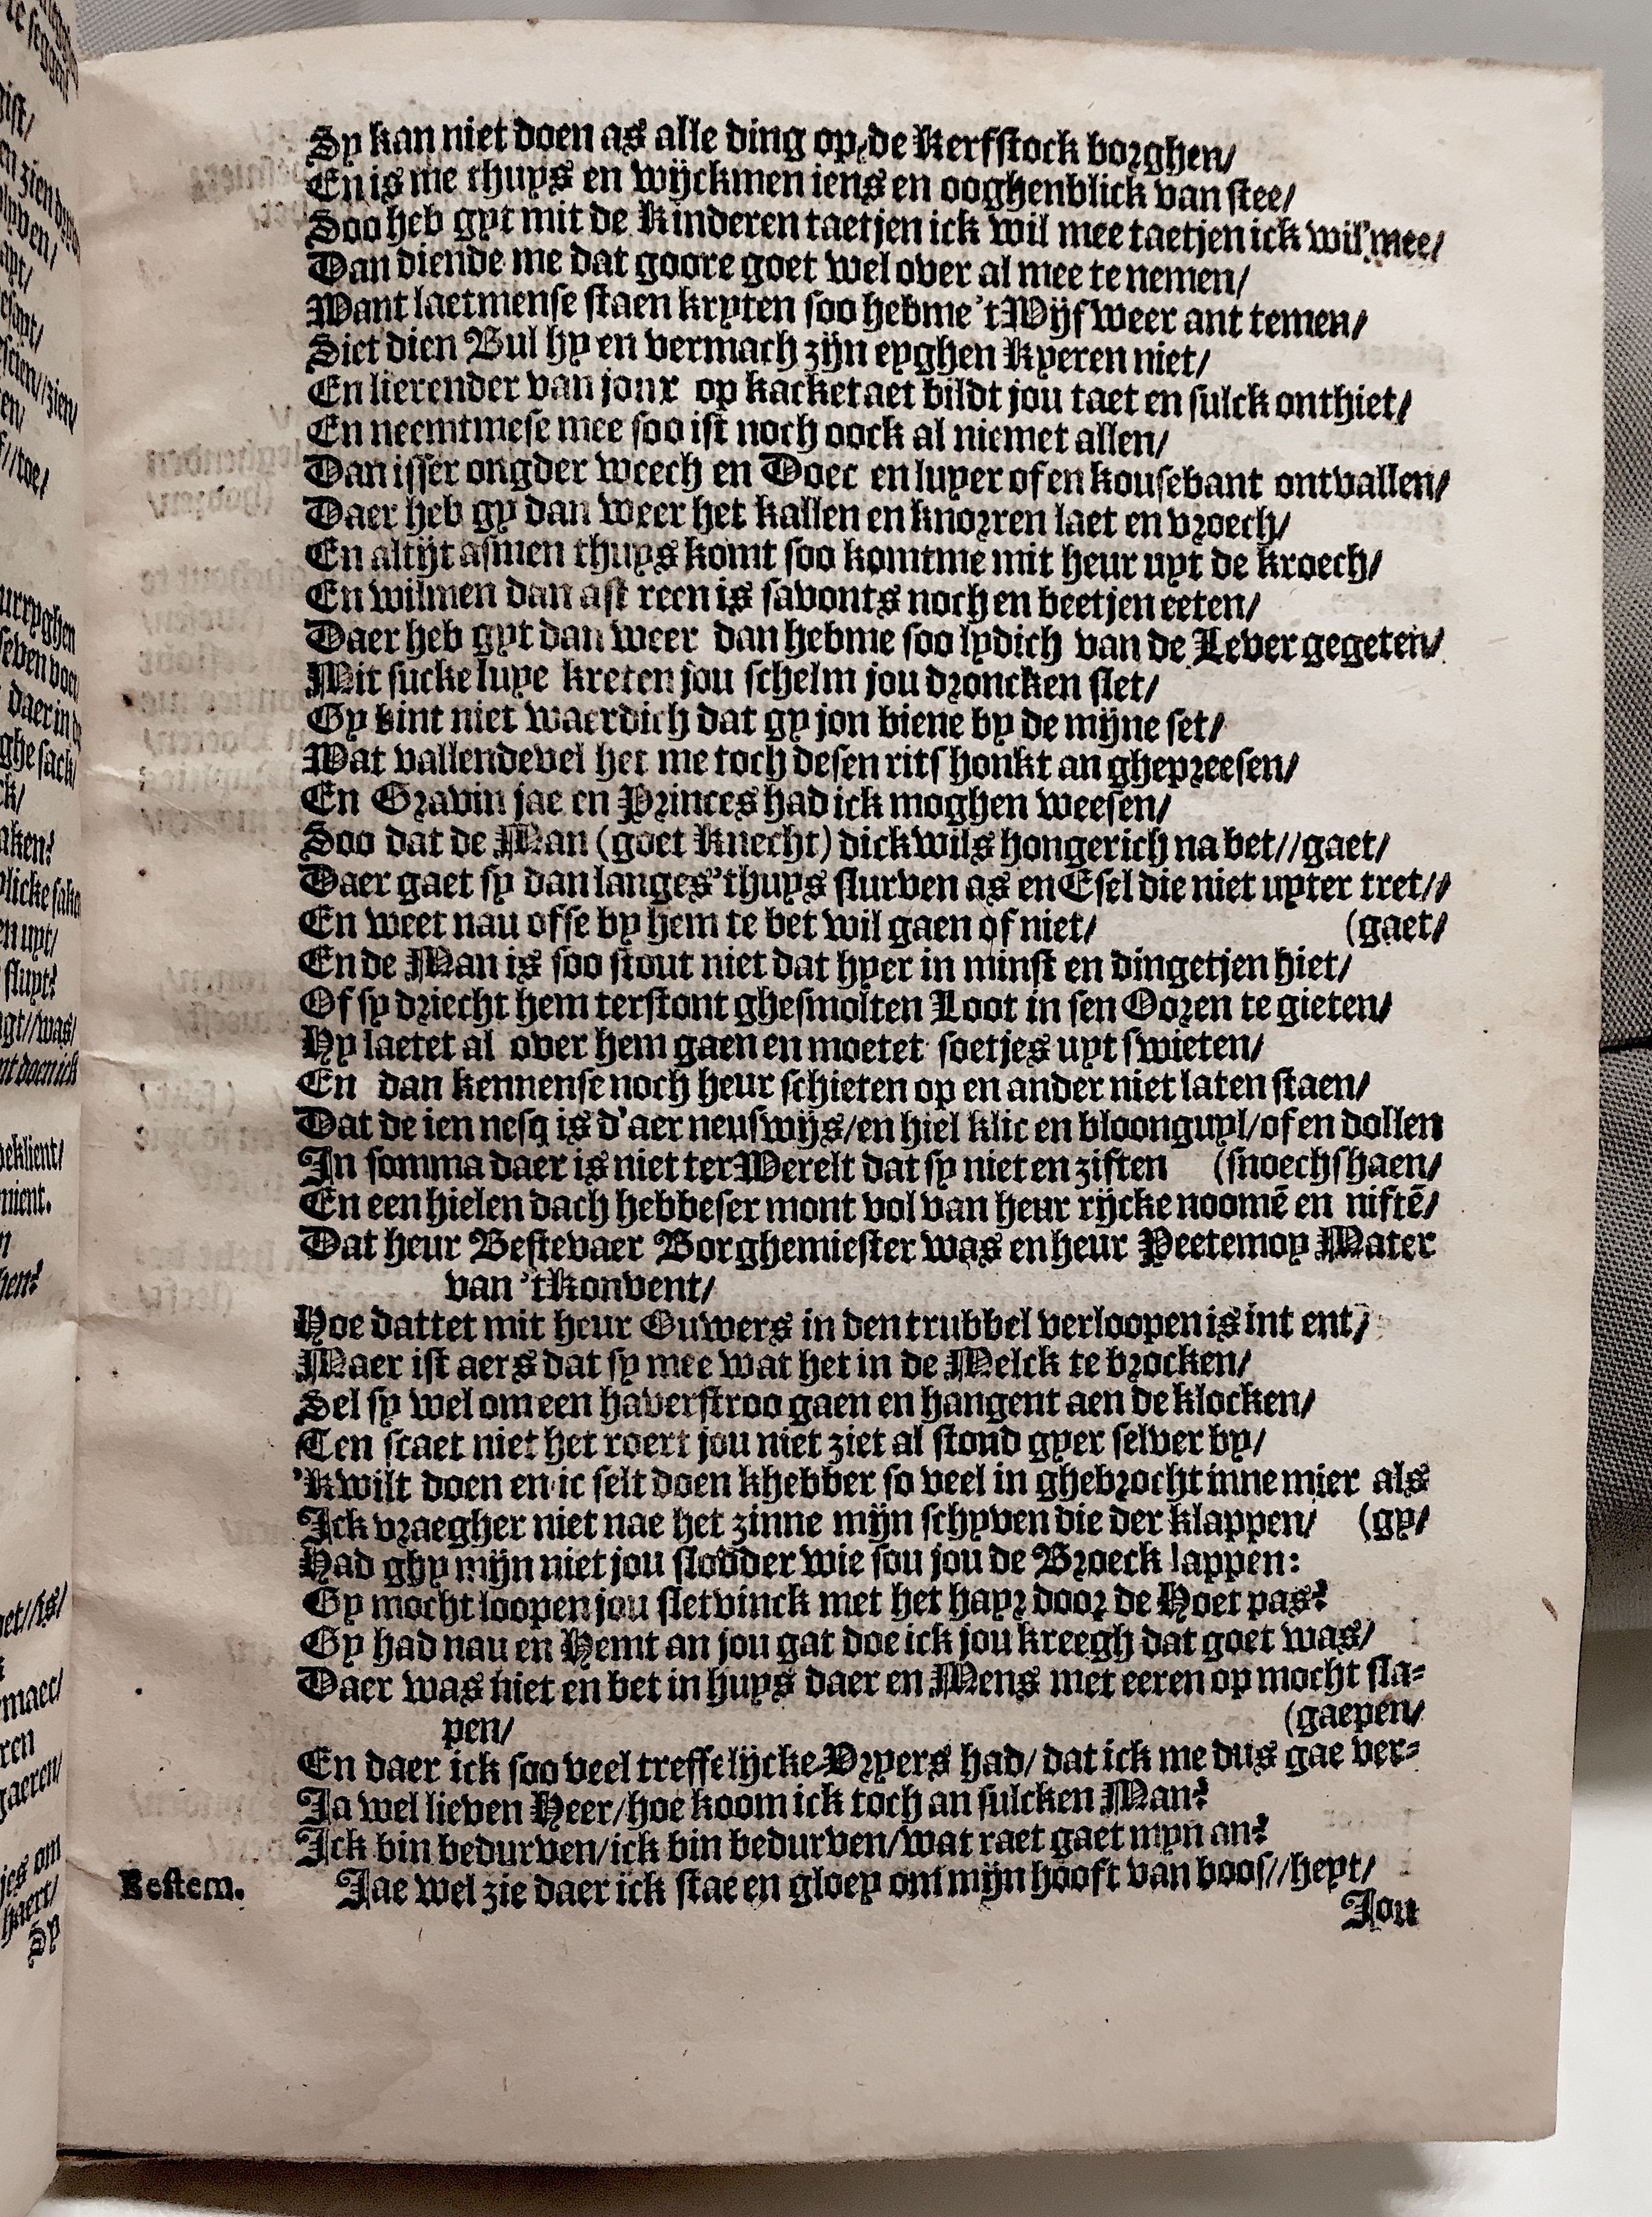 Sy kan niet doen as alle ding op de Kerfstock borghen/
En is me thuys en wijckmen iens en ooghenblick van stee/
Soo heb gyt mit de Kinderen taetjen ick wil mee taetjen ick wil mee/
Dan diende me dat goore goet wel over al mee te nemen/
Want laetmense staen kryten soo hebme 't Wijf weer ant temen/
Siet dien Bul hy en vermach zijn eyghen Kyeren niet/
En lierender van jonx op kacketaet bildt jou taet en sulck onthiet/
En neemtmese mee soo ist noch oock al niemet allen/
Dan isser ongder weech en Doec en luyer of en kousebant ontvallen/
Daer heb gy dan weer het kallen en knorren laet en vroech/
En altijt asmen thuys komt soo komtme mit heur uyt de kroech/
En wilmen dan ast reen is savonts noch en beetjen eeten/
Daer heb gyt dan weer dan hebme soo lydich van de Lever gegeten/
Mit sucke luye kreten jou schelm jou droncken slet/
Gy bint niet waerdich dat gy jon biene by de mijne set/
Wat vallendevel het me toch desen rits honkt an ghepreesen/
En Gravin jae en Princes had ick moghen weesen/
Soo dat de Man (goet Knecht) dickwils hongerich na bet//gaet/
Daer gaet sy dan langes 'thuys slurven as en Esel die niet uyter tret//
En weet nau ofse by hem te bet wil gaen of niet/ (gaet/
En de Man is soo stout niet dat hyer in minst en dingetjen hiet/
Of sy driecht hem terstont ghesmolten Loot in sen Ooren te gieten/
Hy laetet al over hem gaen en moetet soetjes uyt swieten/
En dan kennense noch heur schieten op en ander niet laten staen/
Dat de ien nesq is d'aer neuswijs/en hiel klic en bloonguyl/of en dollen
In somma daer is niet ter Werelt dat sy niet en ziften (snoechshaen/
En een hielen dach hebbeser mont vol van heur rijcke noomē en niftē/
Dat heur Bestevaer Borghemiester was en heur Peetemoy Mater
van 'tkonvent/
Hoe dattet mit heur Ouwers in den trubbel verloopen is int ent/
Maer ist aers dat sy mee wat het in de Melck te brocken/
Sel sy wel om een haverstroo gaen en hangent aen de klocken/
Ten staet niet het roert jou niet ziet al stond gyer selver by/
'K wilt doen en ic selt doen khebber so veel in ghebrocht inne mier als
Ick vraegher niet nae het zinne mijn schyven die der klappen/ (gy/
Had ghy mijn niet jou slodder wie sou jou de Broeck lappen:
Gy mocht loopen jou sletvinck met het hayr door de Hoet pas?
Gy had nau en Hemt an jou gat doe ick jou kreegh dat goet was/
Daer was niet en bet in huys daer en Mens met eeren op mocht sla-
pen/ (gaepen/
En daer ick soo veel treffelijcke Vryers had/ dat ick me dus gae ver-
Ja wel lieven Heer/hoe koom ick toch an sulcken Man?
Ick bin bedurven/ick bin bedurven/wat raet gaet myn an?
Bestem. Jae wel zie daer ick stae en gloey om mijn hooft van boos//heyt/
Jou